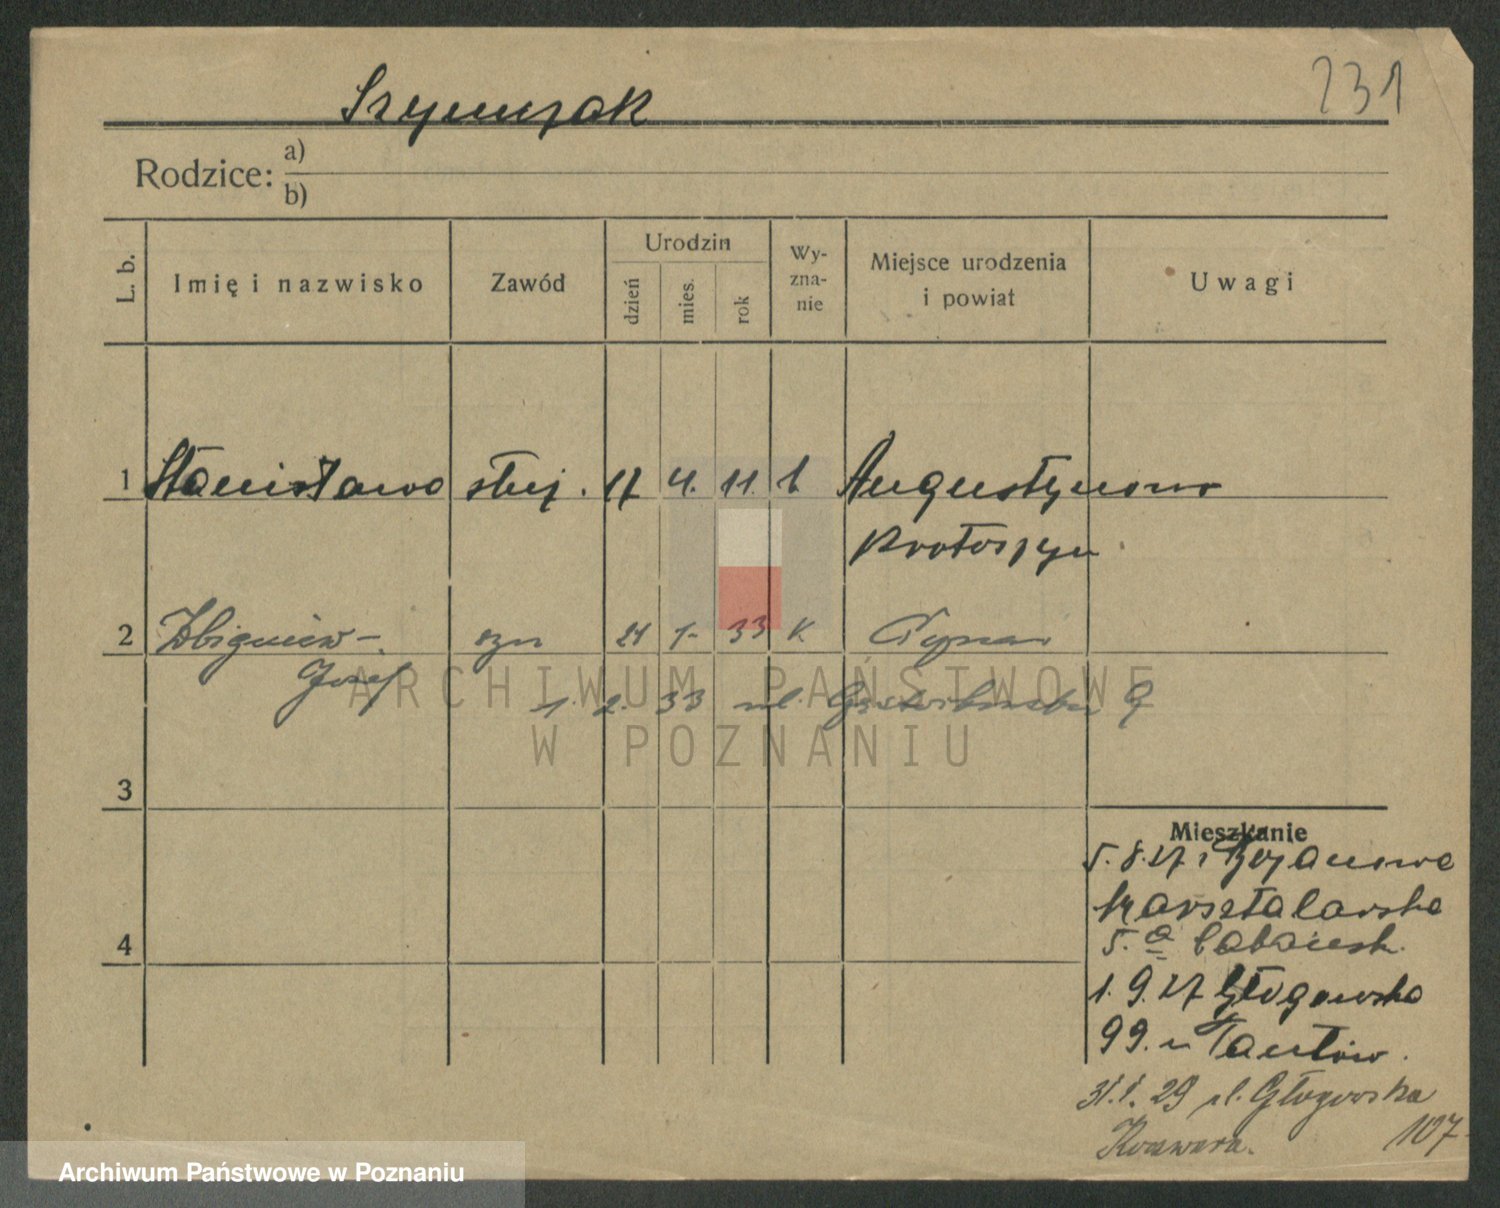 231
Szymczak
Rodzice: a)
b)
L. b.
Imię i nazwisko
Zawód
Urodzin
dzień
mies.
rok
Wy-
zna-
nie
Miejsce urodzenia
i powiat
Uwagi
1 Stanisława służ. 17 4. 11. Augustynowo
Krotoszyn
2 Zbigniew- syn 21 1- 33 k. Poznań
Józef
1. 2. 33 ul. 9
ARCHIWUM PAŃSTWOWE
W POZNANIU
3
4
Mieszkanie
5.8.27 z Bojanowa
Marsztalarska
5. a
1.9.27 Głogowska
99. u
31.1.29 ul. Głogowska
107
Krawara.
Archiwum Państwowe w Poznaniu